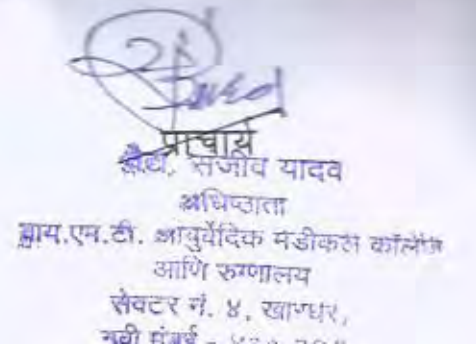 प्राचार्य
वैद्य. संजीव यादव
अधिष्ठाता
वाय.एम.टी. आयुर्वेदिक मेडीकल कॉलेज
आणि रुग्णालय
सेक्टर नं. ४, खारघर,
नवी मुंबई -